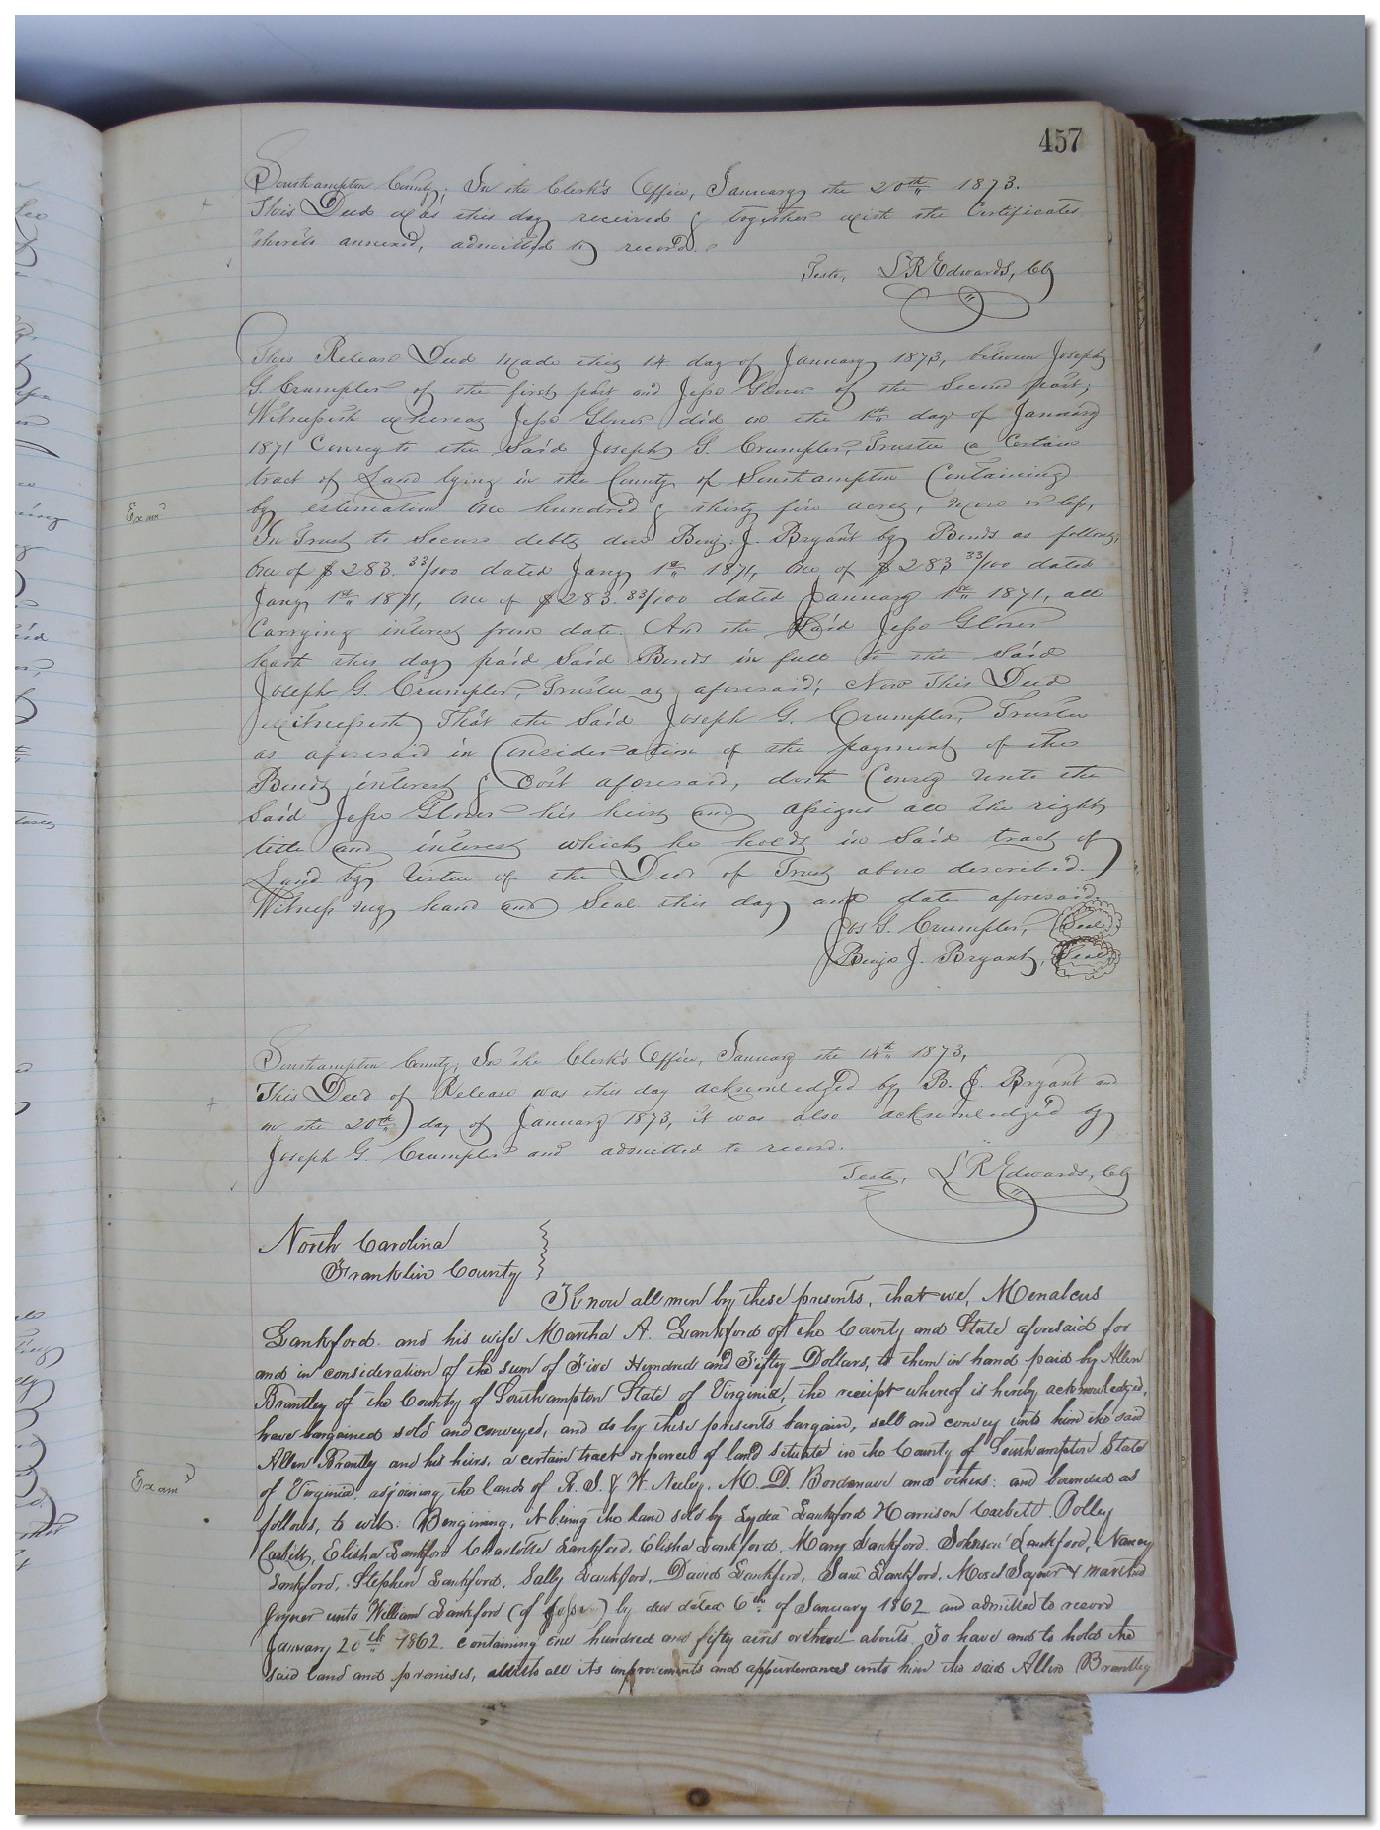 457
Southampton County, In the Clerk's Office, January the 20th 1873.
This Deed was this day received & together with the Certificates
thereto annexed, admitted to record.
Teste, L R Edwards, Clk
This Release Deed made this 14 day of January 1873, between Joseph
G. Crumpler of the first part and Jesse Glover of the Second part,
Witnesseth whereas Jesse Glover did on the 1st day of January
1871 Convey to the Said Joseph G. Crumpler, Trustee a Certain
tract of Land lying in the County of Southampton Containing
Exam'd
by estimation One hundred & thirty five acres, more or less,
In Trust to Secure debts due Benj. J. Bryant by Bonds as follows,
One of $283. 33/100 dated Jany 1st 1871, One of $283 33/100 dated
Jany 1st 1871, One of $283. 33/100 dated January 1st 1871, all
Carrying interest from date. And the Said Jesse Glover
hath this day paid Said Bonds in full to the Said
Joseph G. Crumpler, Trustee as aforesaid; Now This Deed
witnesseth That the Said Joseph G. Crumpler, Trustee
as aforesaid in Consideration of the payment of the
Bonds, interest & Cost aforesaid, doth Convey unto the
Said Jesse Glover his heirs and assigns all the right
title and interest which he holds in Said tract of
Land by Virtue of the Deed of Trust above described.
Witness my hand and Seal this day and date aforesaid.
Jos G. Crumpler, Seal
Benj J. Bryant, Seal
Southampton County, In the Clerk's Office, January the 14th 1873,
This Deed of Release was this day acknowledged by B. J. Bryant and
on the 20th day of January 1873, it was also acknowledged by
Joseph G. Crumpler and admitted to record.
Teste, L R Edwards, Clk
North Carolina
Franklin County
Know all men by these presents, that we, Menalcus
Lankford and his wife Martha A. Lankford of the County and State aforesaid for
and in consideration of the sum of Five Hundred and Fifty Dollars, to them in hand paid by Allen
Brantley of the County of Southampton State of Virginia, the receipt whereof is hereby acknowledged,
have bargained sold and conveyed, and do by these presents bargain, sell and convey unto him the said
Allen Brantley and his heirs, a certain tract or parcel of land situate in the County of Southampton State
Exam'd
of Virginia, adjoining the lands of R. S. & W. Neeley, M. D. Bordenave and others: and bounded as
follows, to wit: Bengining, it being the land sold by Lydia Lankford Harrison Corbett Polley
Corbitt, Elisha Lankford Charlotte Lankford, Elisha Lankford, Mary Lankford, Johnson Lankford, Nancy
Lankford, Stephen Lankford, Sally Lankford, David Lankford, Sam Lankford, Moses Joyner & Martha
Joyner unto William Lankford (of Jesse) by deed dated 6th of January 1862 and admitted to record
January 20th 1862. containing one hundred and fifty acres or there abouts. To have and to hold the
said land and premises, with all its improvements and appurtenances unto him the said Allen Brantley